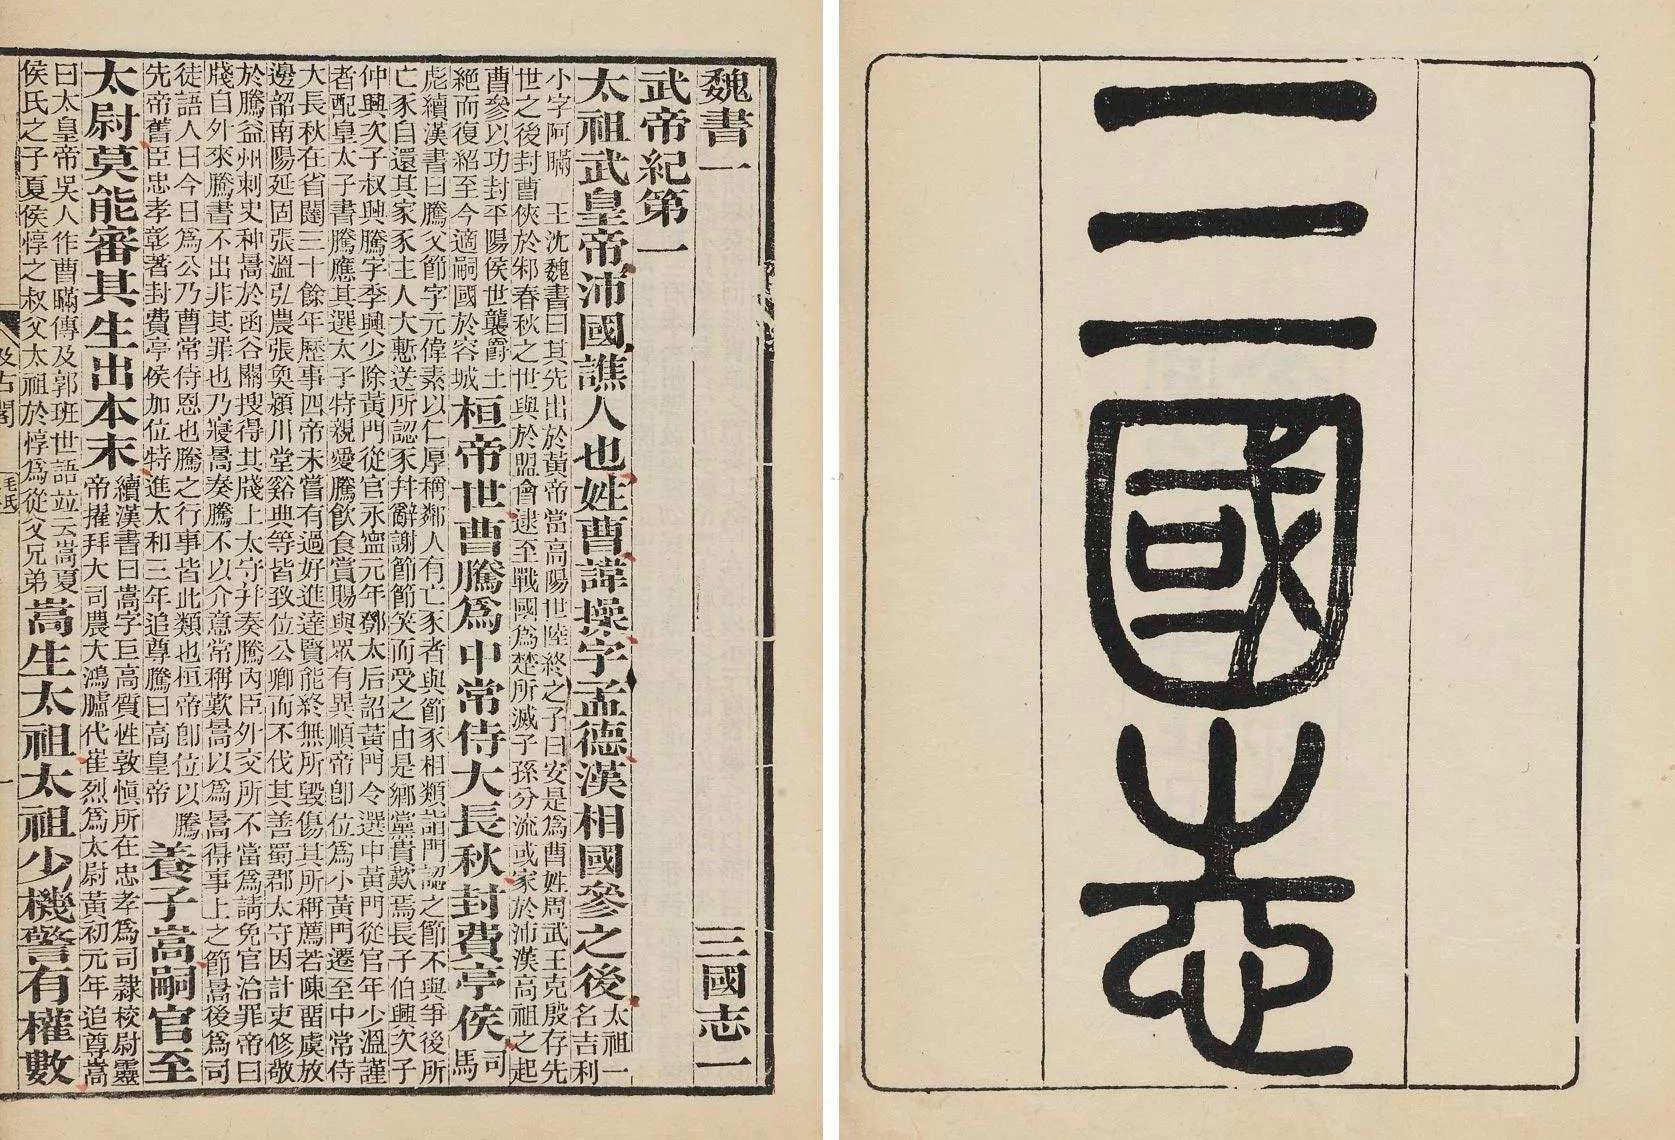 三國志
魏書一 三國志一
武帝紀第一
太祖武皇帝沛國譙人也姓曹諱操字孟德漢相國參之後
太祖一
名吉利
小字阿瞞 王沈魏書曰其先出於黃帝當高陽世陸終之子曰安是爲曹姓周武王克殷存先
世之後封曹俠於邾春秋之世與於盟會逮至戰國爲楚所滅子孫分流或家於沛漢高祖之起
曹參以功封平陽侯世襲爵土
絶而復紹至今適嗣國於容城
桓帝世曹騰爲中常侍大長秋封費亭侯
司
馬
彪續漢書曰騰父節字元偉素以仁厚稱鄰人有亡豕者與節豕相類詣門認之節不與爭後所
亡豕自還其家豕主人大慙送所認豕幷辭謝節節笑而受之由是鄉黨貴歎焉長子伯興次子
仲興次子叔興騰字季興少除黃門從官永寧元年鄧太后詔黃門令選中黃門從官年少溫謹
者配皇太子書騰應其選太子特親愛騰飲食賞賜與眾有異順帝卽位爲小黃門遷至中常侍
大長秋在省闥三十餘年歷事四帝未嘗有過好進達賢能終無所毀傷其所稱薦若陳畱虞放
邊韶南陽延固張溫弘農張奐潁川堂谿典等皆致位公卿而不伐其善蜀郡太守因計吏修敬
於騰益州刺史种暠於函谷關搜得其牋上太守幷奏騰內臣外交所不當爲請免官治罪帝曰
牋自外來騰書不出非其罪也乃寢暠奏騰不以介意常稱歎暠以爲暠得事上之節暠後爲司
徒語人曰今日爲公乃曹常侍恩也騰之行事皆此類也桓帝卽位以騰
先帝舊臣忠孝彰著封費亭侯加位特進太和三年追尊騰曰高皇帝
養子嵩嗣官至
太尉莫能審其生出本末
續漢書曰嵩字巨高質性敦愼所在忠孝爲司隸校尉靈
帝擢拜大司農大鴻臚代崔烈爲太尉黃初元年追尊嵩
曰太皇帝吳人作曹瞞傳及郭班世語竝云嵩夏
侯氏之子夏侯惇之叔父太祖於惇爲從父兄弟
嵩生太祖太祖少機警有權數